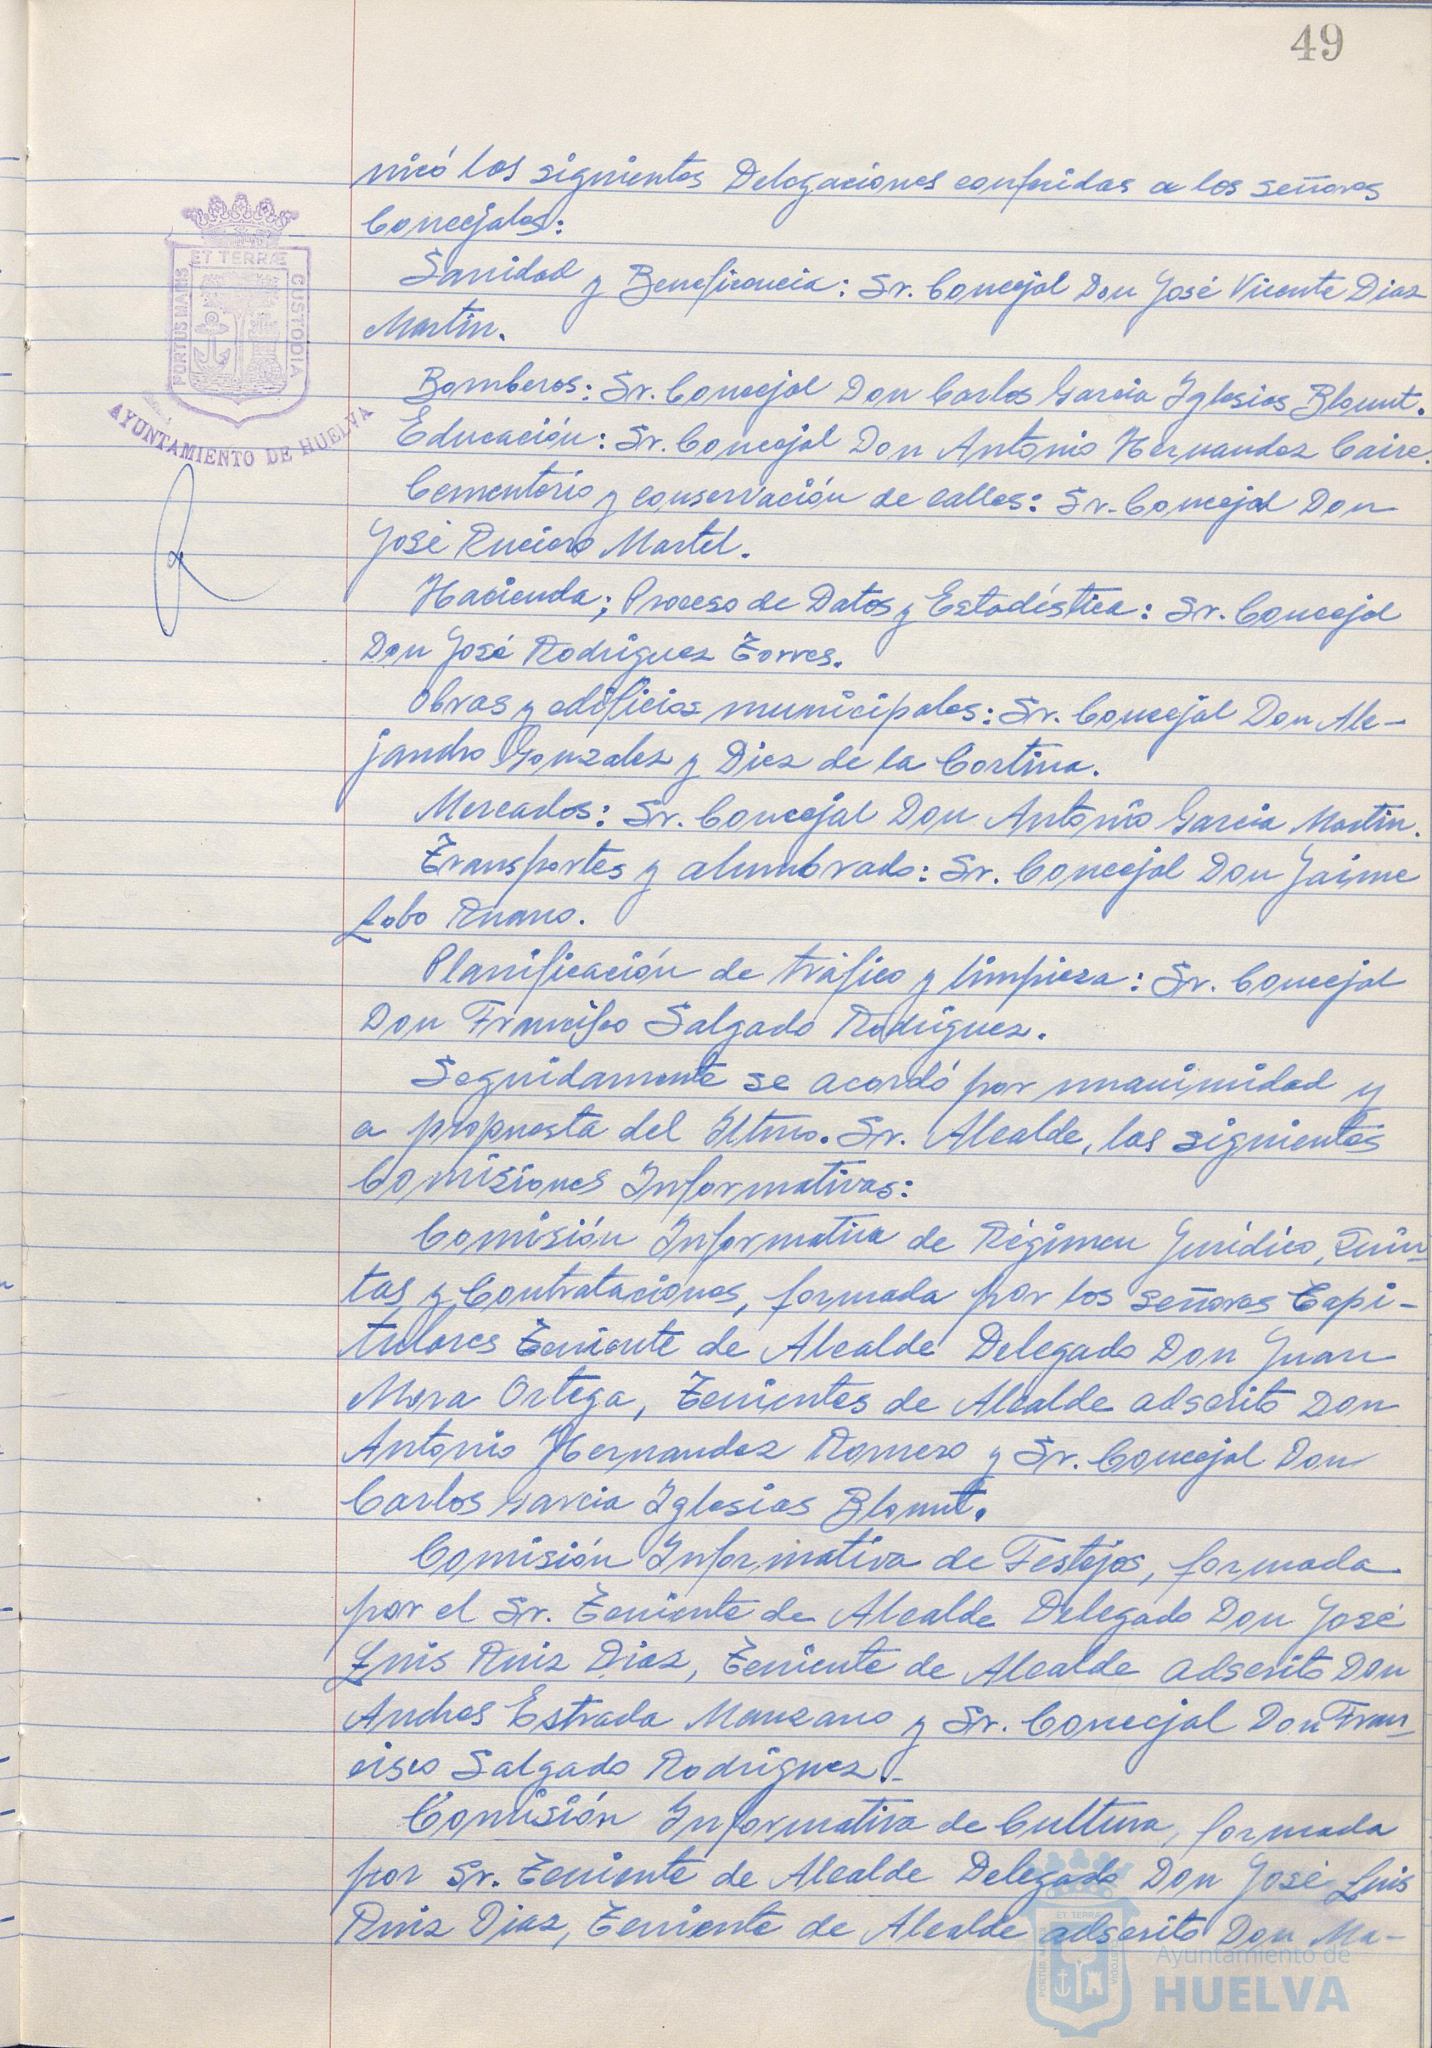 49
nicó las siguientes Delegaciones conferidas a los señores
Concejales:
Sanidad y Beneficencia: Sr. Concejal Don José Vicente Diaz
Martin.
Bomberos: Sr. Concejal Don Carlos Garcia Iglesias Blount.
Educación: Sr. Concejal Don Antonio Hernandez Caire.
Cementerio y conservación de calles: Sr. Concejal Don
José Ruciero Martel.
Hacienda; Proceso de Datos y Estadística: Sr. Concejal
Don José Rodriguez Torres.
Obras y edificios municipales: Sr. Concejal Don Ale-
jandro Gonzalez y Diez de la Cortina.
Mercados: Sr. Concejal Don Antonio Garcia Martin.
Transportes y alumbrado: Sr. Concejal Don Jaime
Lobo Ruano.
Planificación de tráfico y limpieza: Sr. Concejal
Don Francisco Salgado Rodriguez.
Seguidamente se acordó por unanimidad y
a propuesta del Iltmo. Sr. Alcalde, las siguientes
Comisiones Informativas:
Comisión Informativa de Régimen Jurídico, Quin-
tas y Contrataciones, formada por los señores Capi-
tulares Teniente de Alcalde Delegado Don Juan
Mora Ortega, Tenientes de Alcalde adscrito Don
Antonio Hernandez Romero y Sr. Concejal Don
Carlos Garcia Iglesias Blount.
Comisión Informativa de Festejos, formada
por el Sr. Teniente de Alcalde Delegado Don José
Luis Ruiz Diaz, Teniente de Alcalde adscrito Don
Andres Estrada Manzano y Sr. Concejal Don Fran-
cisco Salgado Rodriguez.
Comisión Informativa de Cultura, formada
por Sr. Teniente de Alcalde Delegado Don José Luis
Ruiz Diaz, Teniente de Alcalde adscrito Don Ma-
PORTUS MARIS ET TERRÆ CUSTODIA
AYUNTAMIENTO DE HUELVA
Ayuntamiento de
HUELVA